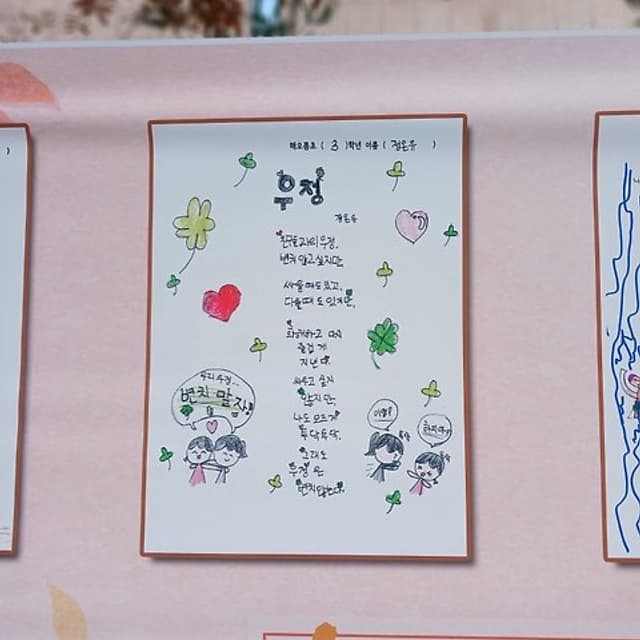 해오름초 ( 3 )학년 이름 ( 정은유 )
우정
정은유
친구들과의 우정,
변치 않고 싶지만,
싸울 때도 있고,
다툴 때도 있지만,
화해하고 다시
즐겁게
지낸다.
싸우고 싶지
않지만,
나도 모르게
투닥투닥,
그래도
우정은
변치않는다.
우리 우정...
변치 말자!
이얍!
하지마!